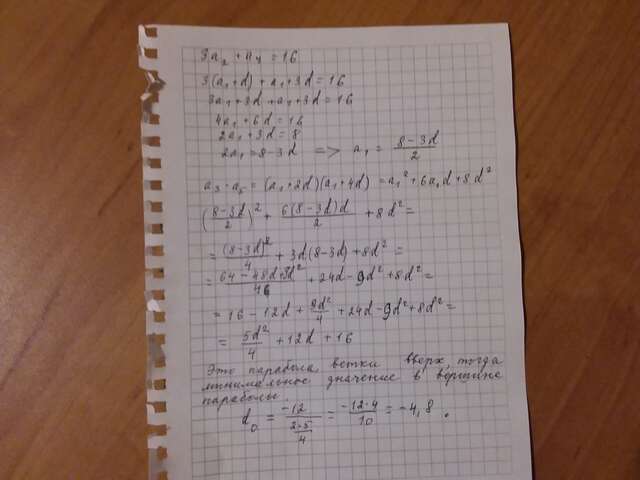 3a₂ + a₄ = 16
3(a₁+d) + a₁+3d = 16
3a₁+3d+a₁+3d = 16
4a₁ + 6d = 16
2a₁ + 3d = 8
2a₁ = 8-3d => a₁ = (8-3d)/2
a₃ · a₅ = (a₁+2d)(a₁+4d) = a₁² + 6a₁d + 8d²
((8-3d)/2)² + 6(8-3d)d/2 + 8d² =
= (8-3d)²/4 + 3d(8-3d) + 8d² =
= 64-48d+9d²/4 + 24d - 9d² + 8d² =
= 16 - 12d + 9d²/4 + 24d - 9d² + 8d² =
= 5d²/4 + 12d + 16
Это парабола, ветки вверх, тогда
минимальное значение в вершине
параболы.
d₀ = -12/(2·5/4) = -12·4/10 = -4,8.